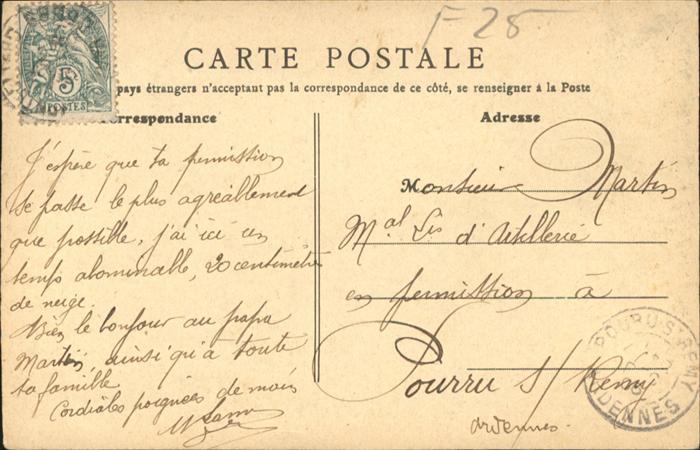 F-25
CARTE POSTALE
pays étrangers n'acceptant pas la correspondance de ce côté, se renseigner à la Poste
Correspondance
J'espère que ta permission
se passe le plus agréablement
que possible, j'ai ici un
temps abominable, 20 centimètres
de neige.
Bien le bonjour au papa
Martin ainsi qu'à toute
ta famille
Cordiales poignées de main
Adresse
Monsieur Martin
Mal Lis d'Artillerie
en permission à
Pourru s/ Remy
Ardennes.
5
POSTES
POURU-ST-REMY
ARDENNES